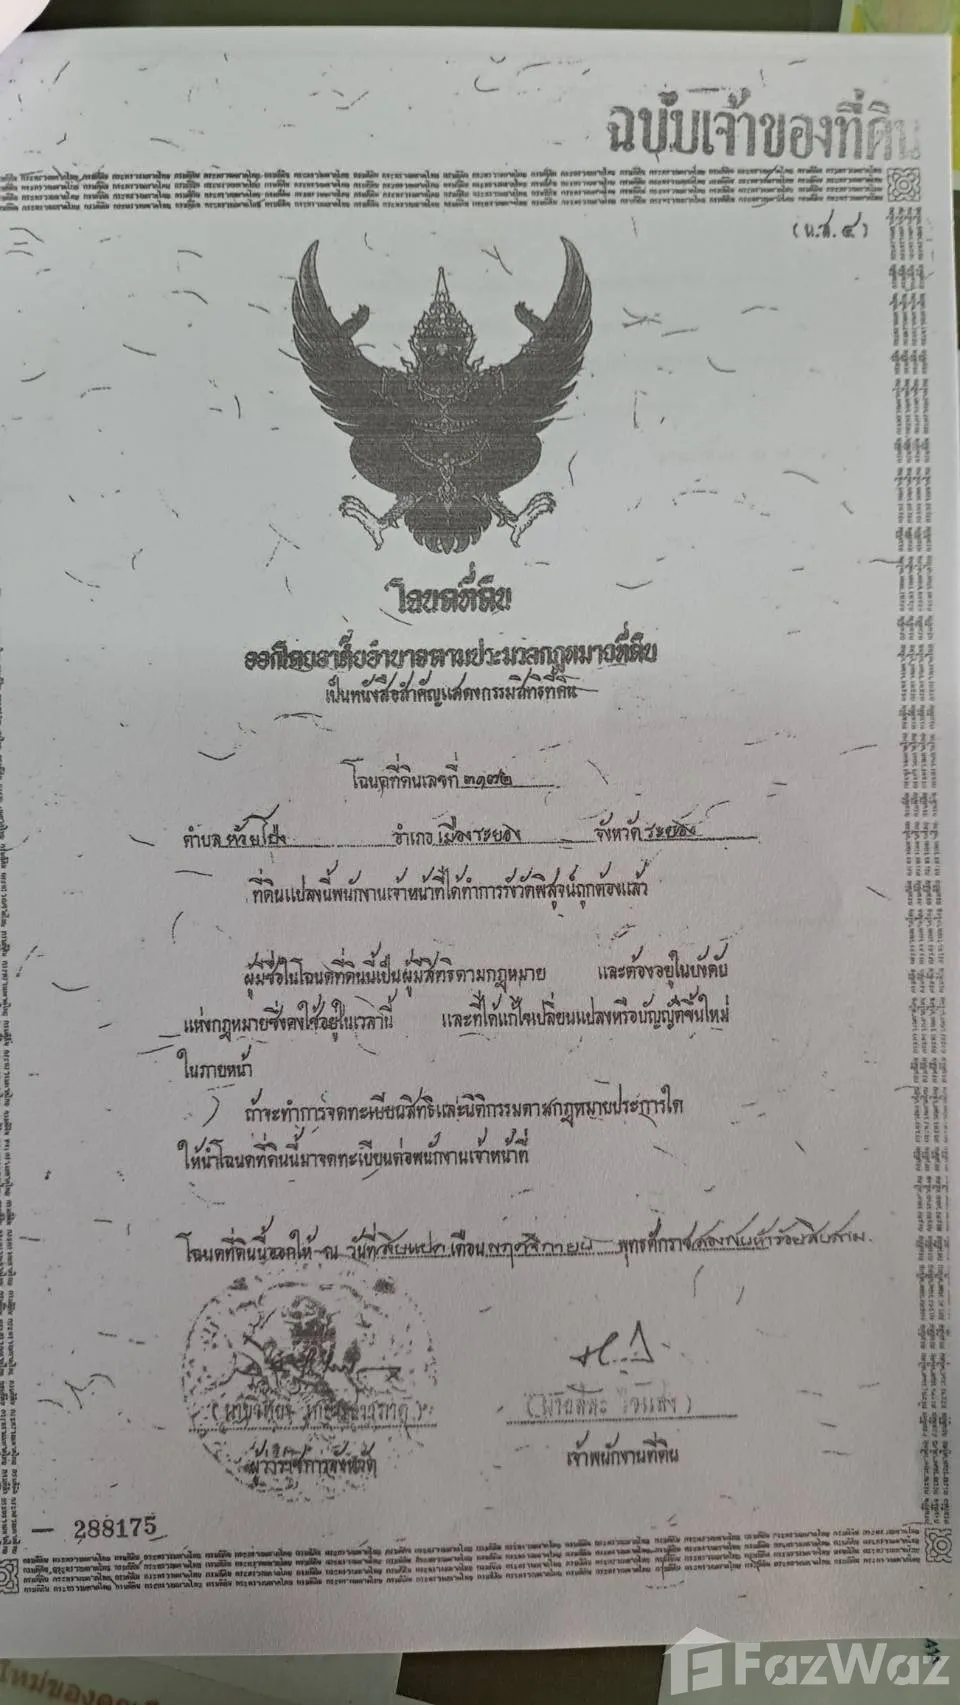 ฉบับเจ้าของที่ดิน
(น.ส. ๔)
โฉนดที่ดิน
ออกโดยอาศัยอำนาจตามประมวลกฎหมายที่ดิน
เป็นหนังสือสำคัญแสดงกรรมสิทธิ์ที่ดิน
โฉนดที่ดินเลขที่ ๓๑๗๒
ตำบล ห้วยโป่ง อำเภอ เมืองระยอง จังหวัด ระยอง
ที่ดินแปลงนี้พนักงานเจ้าหน้าที่ได้ทำการรังวัดพิสูจน์ถูกต้องแล้ว
ผู้มีชื่อในโฉนดที่ดินนี้เป็นผู้มีสิทธิตามกฎหมาย และต้องอยู่ในบังคับ
แห่งกฎหมายซึ่งคงใช้อยู่ในเวลานี้ และที่ได้แก้ไขเปลี่ยนแปลงหรือบัญญัติขึ้นใหม่
ในภายหน้า
ถ้าจะทำการจดทะเบียนสิทธิและนิติกรรมตามกฎหมายประการใด
ให้นำโฉนดที่ดินนี้มาจดทะเบียนต่อพนักงานเจ้าหน้าที่
โฉนดที่ดินนี้ออกให้ ณ วันที่ สิบแปด เดือน พฤศจิกายน พุทธศักราช สองพันห้าร้อยสิบสาม
ผู้ว่าราชการจังหวัด
เจ้าพนักงานที่ดิน
288175
FazWaz